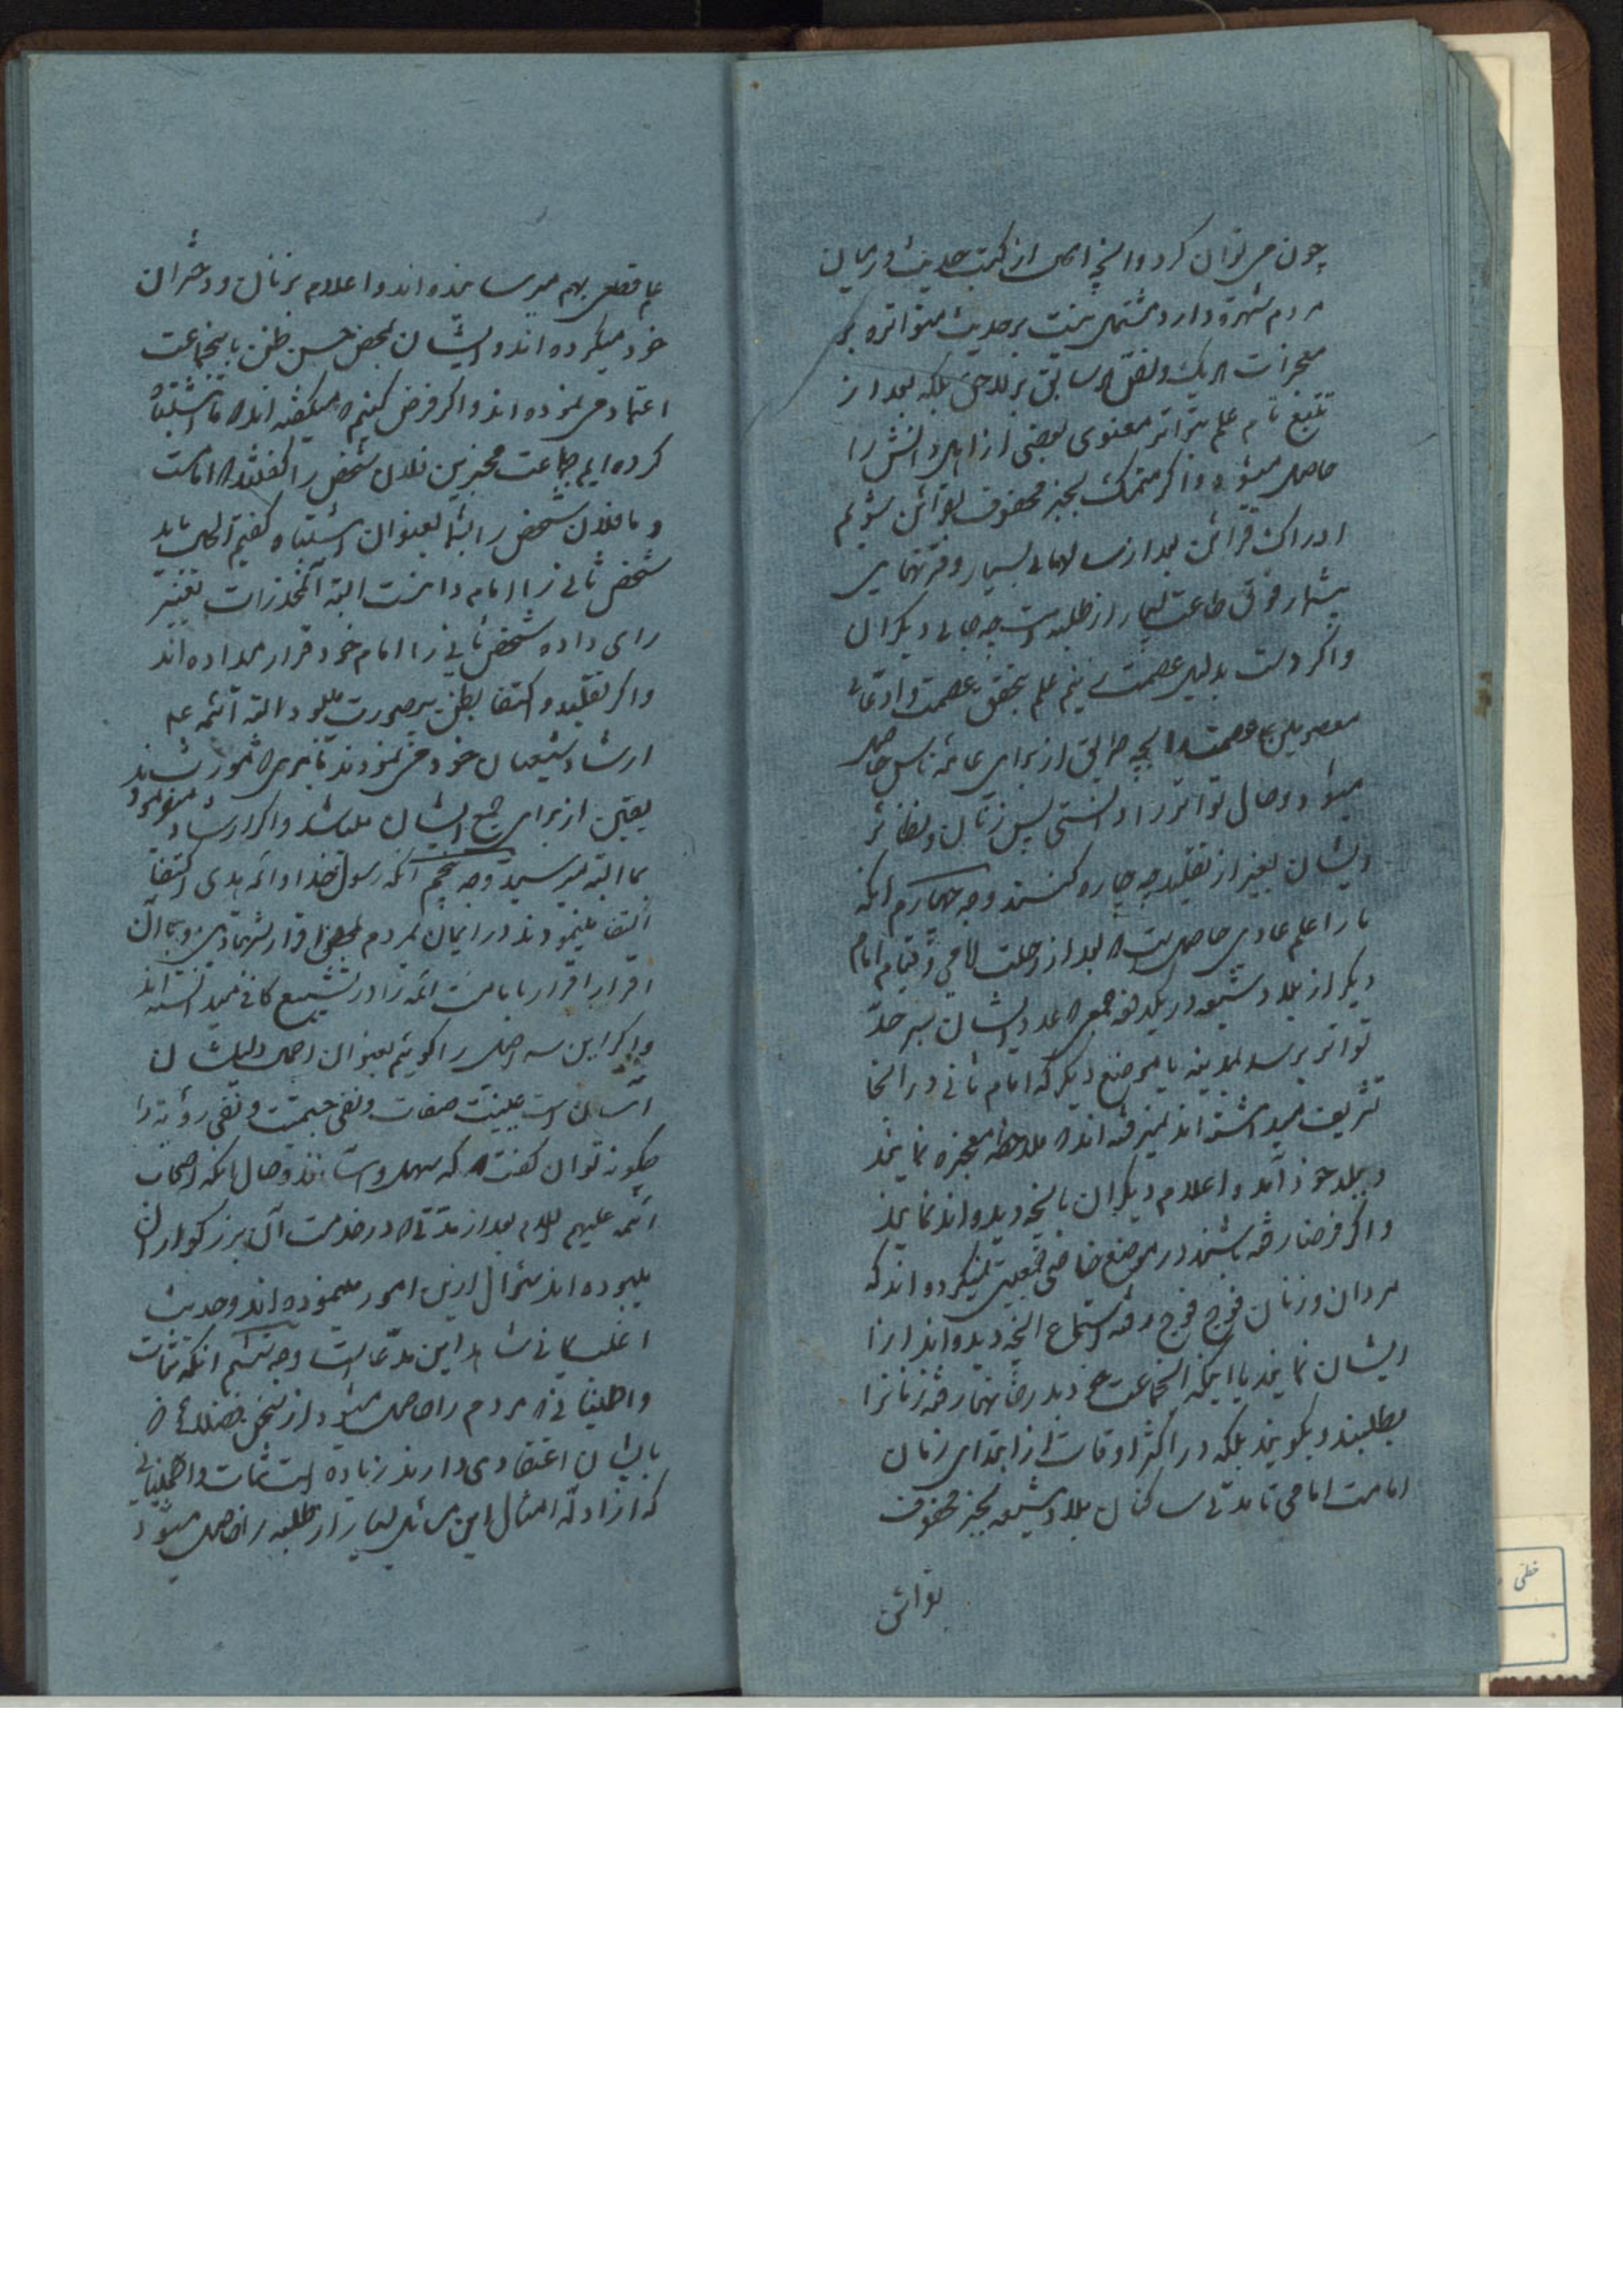 چون می توان کرد و آنچه الحال از کتب حدیث در میان
مردم شهرة دارد مشتمل نیست بر حدیث متواتره بر
معجزات هر یک و نص سابق بر لاحق بلکه بعد از
تتبع تام علم بتواتر معنوی بعضی از اهل دانش را
حاصل میشود و اگر متمسک بخبر محفوف بقرائن شویم
ادراک قرائن بعد از سالهای بسیار و قرنهای
بیشمار فوق طاعت بسیار از طلبه است چه جای دیگران
و اگر دست بدلیل عصمت زنیم علم بتحقق عصمت و ادعای
معصومین عصمت را بچه طریق از برای عامه ناس حاصل
میشود و حال تواتر را دانستی پس زنان و نظائر
ایشان بغیر از تقلید چه چاره کنند وجه چهارم آنکه
ما را علم عادی حاصل است که بعد از رحلت امامی و قیام امام
دیگر از بلاد شیعه در یکدفعه جمعی که عدد ایشان بسر حد
تواتر برسد بمدینه یا موضع دیگر که امام ثانی در آنجا
تشریف میداشته اند نمیرفته اند که ملاحظه معجزه نمایند
و ببلد خود آمده اعلام دیگران بآنچه دیده اند نمایند
و اگر فرضا رفته باشند در موضع خاصی جمعیت نمیکرده اند که
مردان و زنان فوج فوج رفته استماع آنچه دیده اند از
ایشان نمایند یا اینکه آنجماعت خود بدر خانها رفته زنانرا
بطلبند و بگویند بلکه در اکثر اوقات از ابتدای زمان
امامت امامی تا مدتی ساکنان بلاد شیعه بخبر محفوف
بقرائن
علم قطعی بهم میرسانیده اند و اعلام بزنان و دختران
خود میکرده اند و ایشان بمحض حسن ظن باینجماعت
اعتماد می نموده اند و اگر فرض کنیم که میگفته اند که ما اشتباه
کرده ایم جماعت مخبرین فلان شخص را گفتند که امامست
و ما فلان شخص را بشما بعنوان اشتباه گفتیم الحال باید
شخص ثانی را امام دانست البته آنمخدرات تغییر
رای داده شخص ثانی را امام خود قرار میداده اند
و اگر تقلید و اکتفا بظن بیصورت میبود البته ائمه ع
ارشاد شیعیان خود می نمودند تا بمرتبه که مورث
یقین از برای جمیع ایشان میشد و اگر ارشاد
بما البته میرسید وجه پنجم آنکه رسول خدا و ائمه هدی اکتفا
مینمودند در ایمان مردم بمحض اقرار بشهادتین و با آن
اقرار اقرار بامامت ائمه را در تشیع کافی میدانسته اند
و اگر این سه اصل را گوئیم بعنوان اصل دلیلشان
آسان است عینیت صفات و نفی جسمیت و نفی رؤیة را
چگونه توان گفت که سهل است و حال آنکه اصحاب
ائمه علیهم السلام بعد از مدتی که در خدمت آن بزرگواران
میبوده اند سؤال ازین امور مینموده اند و حدیث
وجه ششم آنکه ثبات
و اطمینانی که مردم را حاصل میشود از سخن فضلائی که
بایشان اعتقادی دارند زیاده است از ثبات و اطمینانی
که از ادله امثال این مسائل بسیار از طلبه را حاصل میشود
خطی